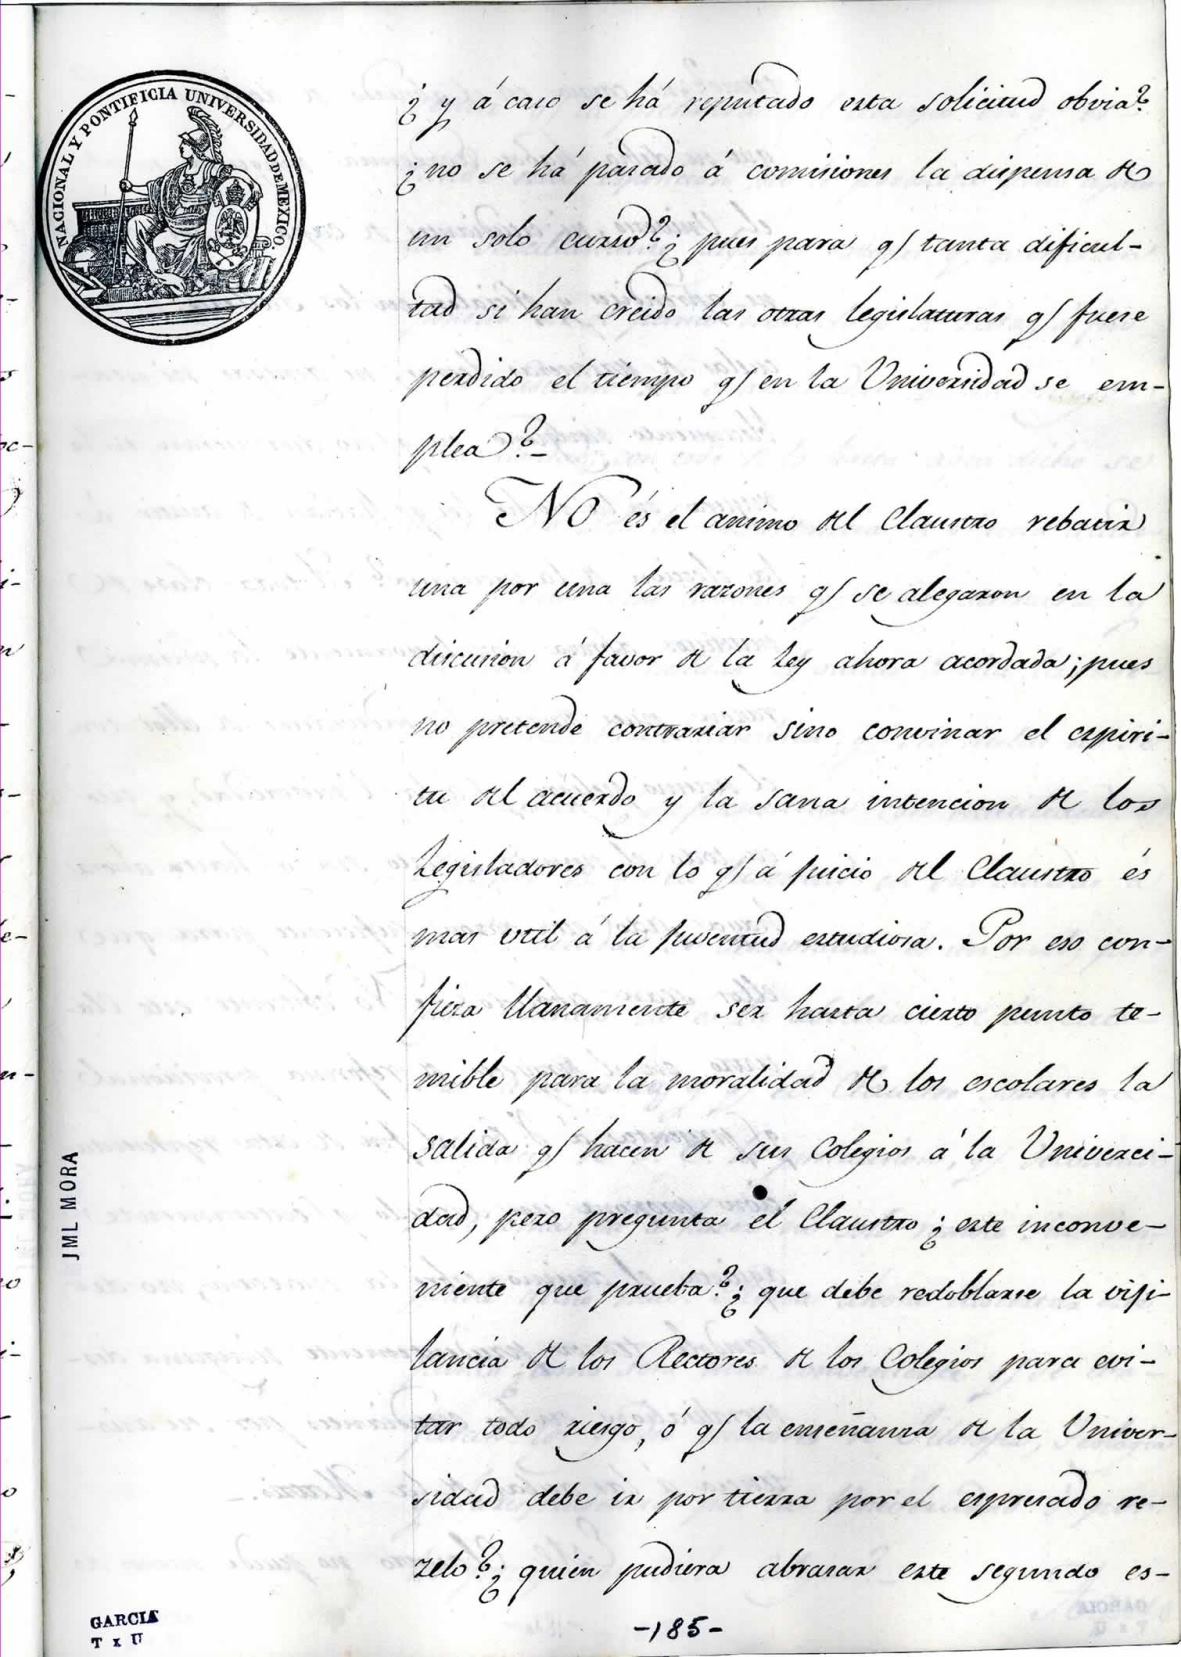 NACIONAL Y PONTIFICIA UNIVERSIDAD DE MEXICO.
¿ y á caso se há reputado esta solicitud obvia?
¿ no se há pasado á comisiones la dispensa de
un solo curso? ¿ pues para q/ tanta dificul-
tad si han creido las otras legislaturas q/ fuese
perdido el tiempo q/ en la Universidad se em-
plea?-
No és el animo del Claustro rebatir
una por una las razones q/ se alegaron en la
discusion á favor de la Ley ahora acordada; pues
no pretende contrariar sino convinar el espiri-
tu del acuerdo y la sana intencion de los
Legisladores con lo q/ á juicio del Claustro és
mas util á la juventud estudiosa. Por eso con-
fiesa llanamente ser hasta cierto punto te-
mible para la moralidad de los escolares la
salida q/ hacen de sus Colegios á la Universi-
dad, pero pregunta el Claustro ¿ este inconve-
niente que prueba? ¿ que debe redoblarse la viji-
lancia de los Rectores de los Colegios para evi-
tar todo riesgo, ó q/ la enseñanza de la Univer-
sidad debe ir por tierra por el espresado re-
zelo? ¿ quien pudiera abrasar este segundo es-
-185-
JML MORA
GARCIA
T x U